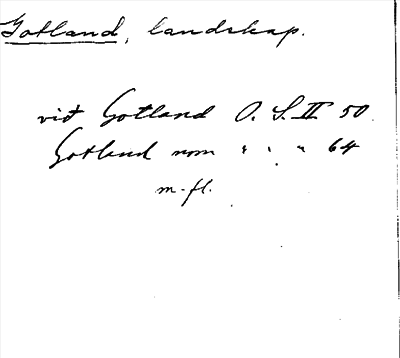 Gotland, landskap.
vid Gotland O. S. II 50
Gotland nom " " " 64
m. fl.